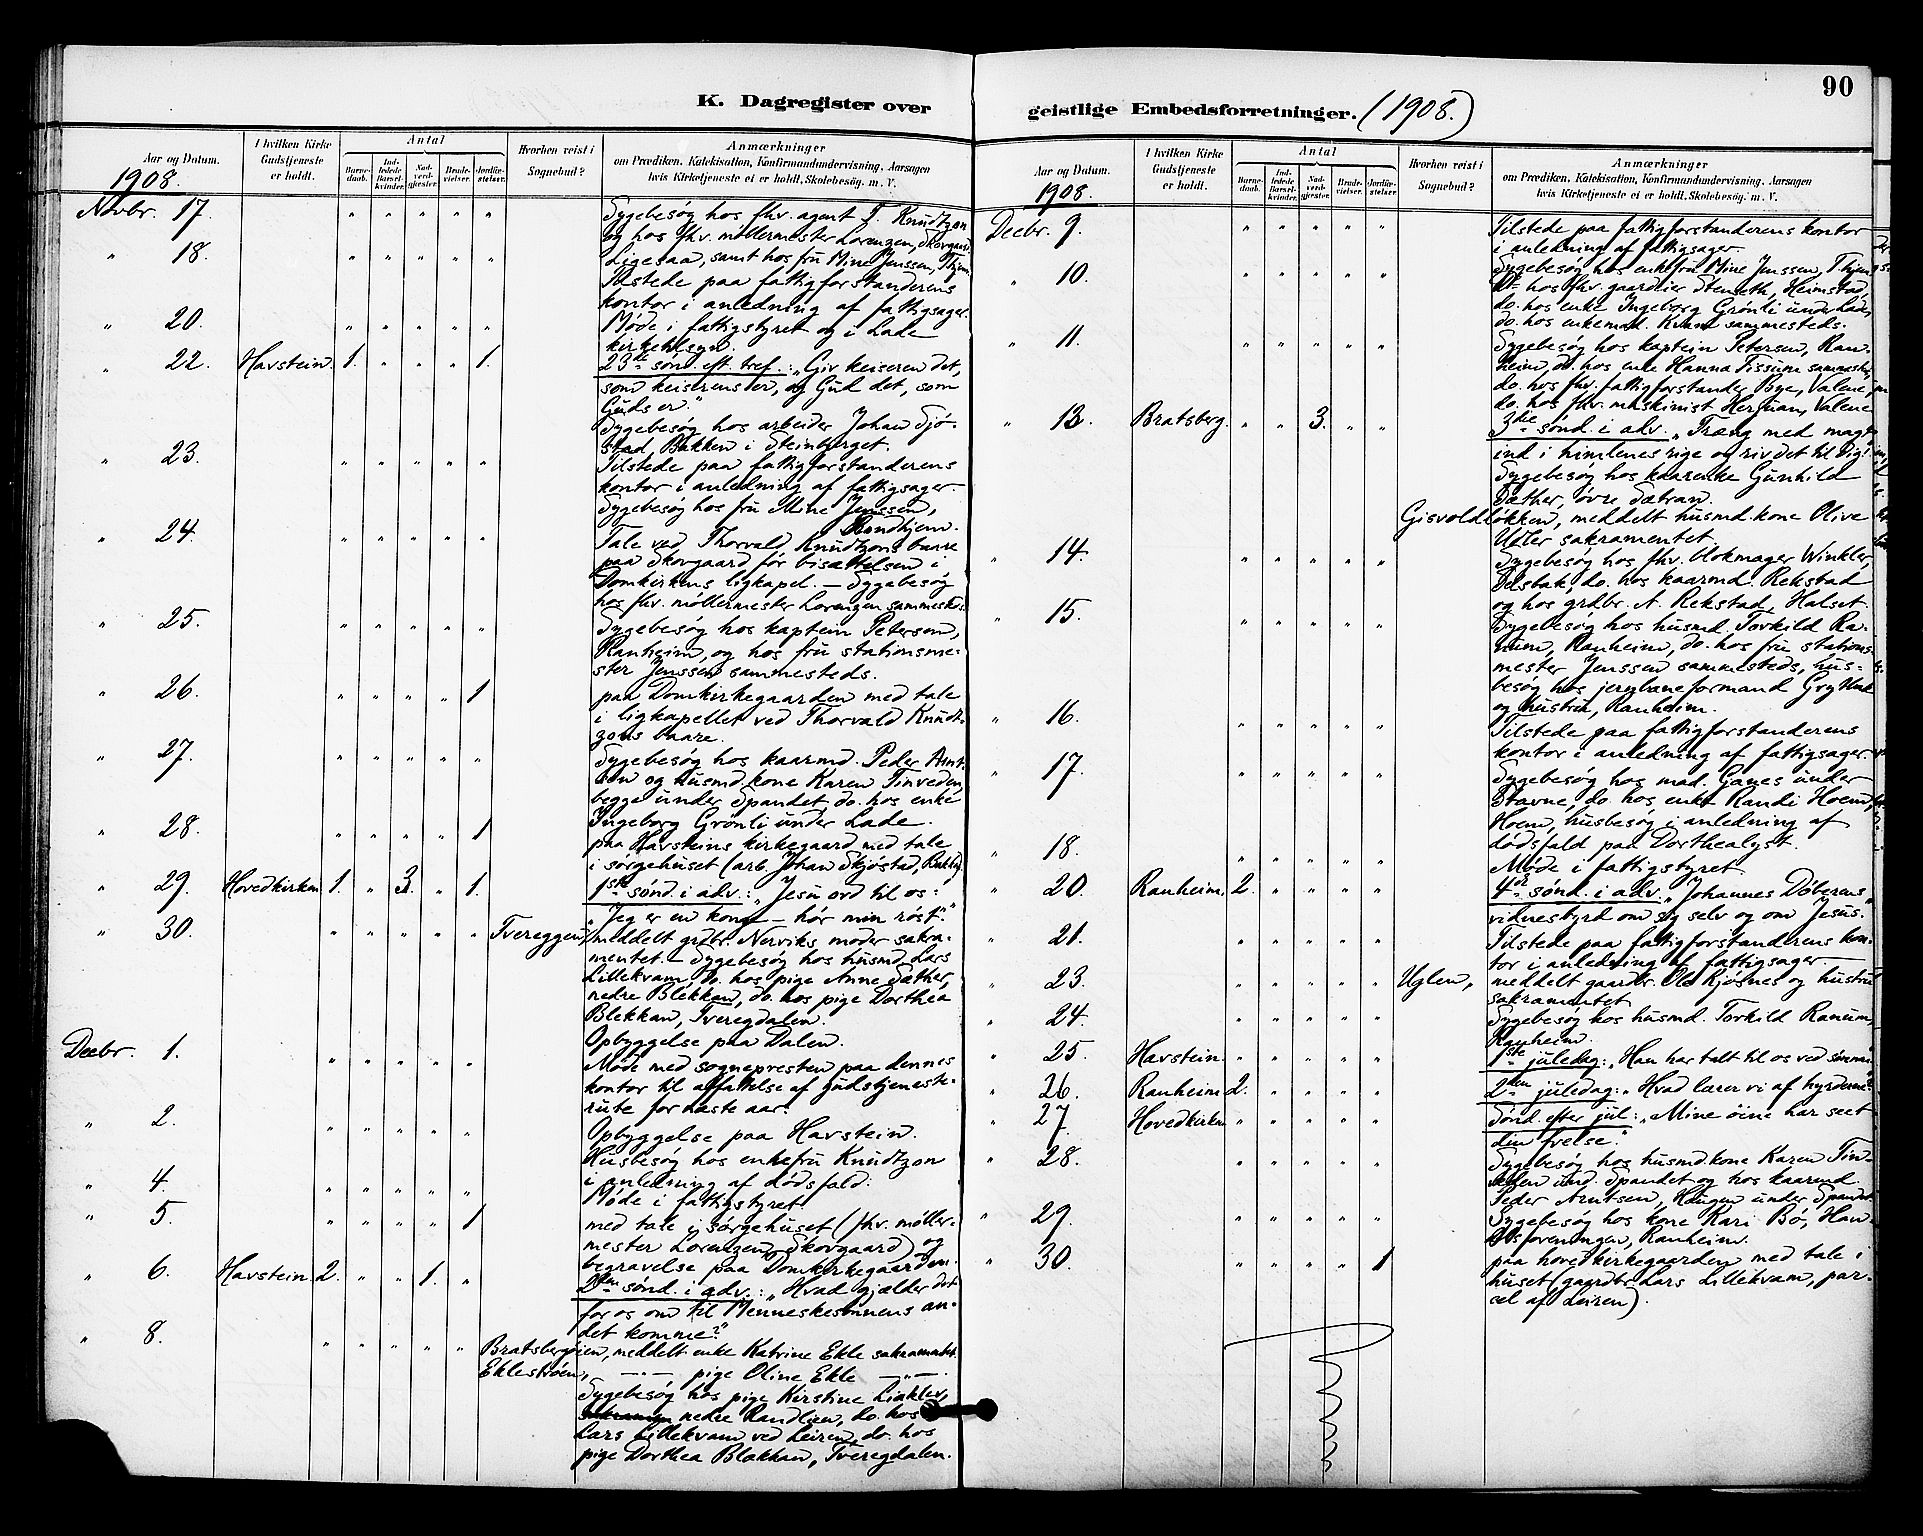 90
K. Dagregister over geistlige Embedsforretninger. (1908.)
Aar og Datum.
1908.
I hvilken Kirke Gudstjeneste er holdt.
Antal
Barnedaab.
Indledede Barselkvinder.
Nadverdgjester.
Brudevielser.
Jordfæstelser.
Hvorhen reist i Sognebud?
Anmærkninger
om Prædiken, Katekisation, Konfirmandundervisning, Aarsagen
hvis Kirketjeneste ei er holdt, Skolebesøg. m. V.
Novbr. 17. " " " " " Sygebesøg hos fhv. agent T. Knudtzon
og hos fhv. møllermester Lorenzen, Skovgaard
" 18. " " " " " Ligesaa, samt hos fru Mine Jenssen,
Tilstede paa fattigforstanderens
kontor i anledning af fattigsager.
" 20. " " " " " Møde i fattigstyret og i Lade
kirketilsyn.
" 22. Havstein. 1. " " " 1. 23de sønd. eft. tref.: "Giv keiseren det,
som keiserens er, og Gud det, som
Guds er."
Sygebesøg hos arbeider Johan Sjø-
stad, Bakken i Steinberget.
" 23. " " " " " Tilstede paa fattigforstanderens
kontor i anledning af fattigsager.
Sygebesøg hos fru Mine Jenssen,
" 24. " " " " " Tale ved Thorvald Knudtzons baare
paa Skovgaard før bisættelsen i
Domkirkens ligkapel. – Sygebesøg
hos fhv. møllermester Lorenzen sammesteds.
" 25. " " " " " Sygebesøg hos kaptein Petersen,
Ranheim, og hos fru stationsme-
ster Jenssen sammesteds.
" 26. " " " " 1 paa Domkirkegaarden med tale
i ligkapellet ved Thorvald Knudt-
zons baare.
" 27. " " " " " Sygebesøg hos kaarmd. Peder Arnt-
sen og husmd.kone Karen Tinveden,
begge under Spandet, do. hos enke
Ingeborg Grønli under Lade.
" 28. " " " " 1 paa Havsteins kirkegaard med tale
i sørgehuset (arb. Johan Skjøstad,
" 29. Hovedkirken 1. " 3. " 1. 1ste sønd. i adv.: "Jesu ord til os:
"Jeg er en konge – hør min røst"."
" 30. " " " " " Tvereggen, meddelt grdbr. Nerviks moder sakra-
mentet. – Sygebesøg hos husmd. Lars
Lillekvam, do. hos pige Anne Sæther,
nedre Blekkan, do. hos pige Dorthea
Blekkan, Tveregdalen.
Opbyggelse paa Dalen.
Decbr. 1. " " " " " Møde med sognepresten paa dennes
kontor til affattelse af gudstjeneste-
rute for næste aar.
" 2. " " " " " Opbyggelse paa Havstein.
Husbesøg hos enkefru Knudtzon
i anledning af dødsfald.
" 4. " " " " " Møde i fattigstyret.
" 5. " " " " 1 med tale i sørgehuset (fhv. møller-
mester Lorenzen, Skovgaard) og
begravelse paa Domkirkegaarden.
" 6. Havstein 2. " " 1. " 2den sønd. i adv.: "Hvad gjælder det
for os om til Menneskesønnens an-
det komme?"
" 8. " " " " " Bratsbergøien, meddelt enke Katrine Ekle sakramentet.
Eklestrøen, – " – pige Oline Ekle – " –
Sygebesøg hos pige Kirstine
nedre Randlien, do. hos
Lars Lillekvam ved Leiren, do. hos
pige Dorthea Blekkan, Tveregdalen.
Aar og Datum.
1908.
I hvilken Kirke Gudstjeneste er holdt.
Antal
Barnedaab.
Indledede Barselkvinder.
Nadverdgjester.
Brudevielser.
Jordfæstelser.
Hvorhen reist i Sognebud?
Anmærkninger
om Prædiken, Katekisation, Konfirmandundervisning, Aarsagen
hvis Kirketjeneste ei er holdt, Skolebesøg. m. V.
Decbr. 9. " " " " " Tilstede paa fattigforstanderens kontor
i anledning af fattigsager.
" 10. " " " " " Sygebesøg hos enkefru Mine Jenssen,
do. hos fhv. gaardeier Stenseth, Heimstad,
do. hos enke Ingeborg Grønli under Lade,
do. hos enkemad. Kvam sammesteds.
" 11. " " " " " Sygebesøg hos kaptein Petersen, Ran-
heim, do. hos enke Hanna Tissum
do. hos fhv. fattigforstander Bye, Valene,
do. hos fhv. maskinist Herman, Valene
" 13. Bratsberg. " " 3. " " 3die sønd. i adv. "Træng med magt
ind i himlenes rige og riv det til dig!"
Sygebesøg hos kaarenke Gunhild
Sæther, øvre Sætran.
Gisvoldløkken, meddelt husmd.kone Olive
sakramentet.
" 14. " " " " " Sygebesøg hos fhv. blokmager Winkler,
do. hos kaarmd. Rekstad
og hos grdbr. A. Rekstad, Halset.
" 15. " " " " " Sygebesøg hos husmd. Torkild Ra-
num, Ranheim, do. hos fru stations-
mester Jenssen sammesteds, hus-
besøg hos jernbaneformand
og hustru, Ranheim.
" 16. " " " " " Tilstede paa fattigforstanderens
kontor i anledning af fattigsager.
" 17. " " " " " Sygebesøg hos mad. Ganes under
Stavne, do. hos enke Randi Hoem,
Hoem, husbesøg i anledning af
dødsfald paa Dorthealyst.
" 18. " " " " " Møde i fattigstyret.
" 20. Ranheim, 2. " " " " 4de sønd. i adv. "Johannes Døberens
vidnesbyrd om sig selv og om Jesus."
" 21. " " " " " Tilstede paa fattigforstanderens kon-
tor i anledning af fattigsager. –
" 23. " " " " " Uglen, meddelt gaardbr. Ole Kjøsnes og hustru
sakramentet.
" 24. " " " " " Sygebesøg hos husmd. Torkild Ranum,
Ranheim.
" 25. Havstein. " " " " " 1ste juledag: "Han har talt til os ved sønnen."
" 26. Ranheim 2. " " " " 2den juledag: "Hvad lærer vi af hyrderne?"
" 27. Hovedkirken " " " " " Sønd. efter jul: "Mine øine har seet
din frelse."
" 28. " " " " " Sygebesøg hos husmd.kone Karen Tin-
veden und. Spandet og hos kaarmd.
Peder Arntsen, Haugen under Spandet.
" 29. " " " " " Sygebesøg hos kone Kari Bø, Han-
delsforeningen, Ranheim.
" 30. " " " " 1 paa hovedkirkegaarden med tale i
huset (gaardbr. Lars Lillekvam, par-
cel af Leiren).